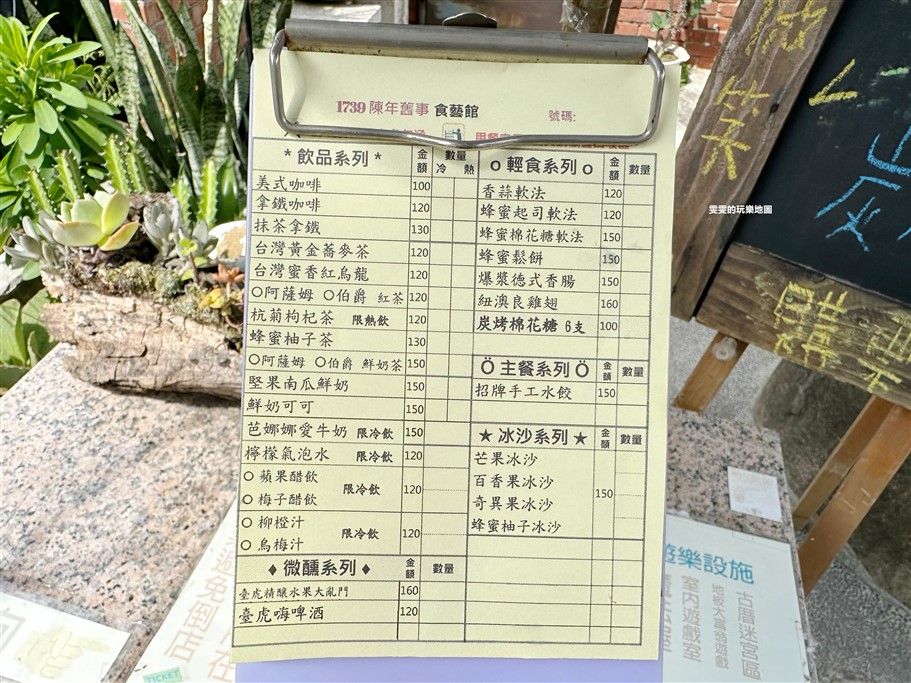 1739 陳年舊事 食藝館
號碼:
* 飲品系列 * 金額 數量 冷 熱
美式咖啡 100
拿鐵咖啡 120
抹茶拿鐵 130
台灣黃金蕎麥茶 120
台灣蜜香紅烏龍 120
○阿薩姆 ○伯爵 紅茶 120
杭菊枸杞茶 限熱飲 120
蜂蜜柚子茶 130
○阿薩姆 ○伯爵 鮮奶茶 150
堅果南瓜鮮奶 150
鮮奶可可 150
芭娜娜愛牛奶 限冷飲 150
檸檬氣泡水 限冷飲 120
○ 蘋果醋飲
○ 梅子醋飲
限冷飲 120
○ 柳橙汁
○ 烏梅汁
限冷飲 120
♦ 微醺系列 ♦ 金額 數量
臺虎精釀水果大亂鬥 160
臺虎嗨啤酒 120
o 輕食系列 o 金額 數量
香蒜軟法 120
蜂蜜起司軟法 120
蜂蜜棉花糖軟法 150
蜂蜜鬆餅 150
爆漿德式香腸 150
紐澳良雞翅 160
炭烤棉花糖 6支 100
Ö 主餐系列 Ö 金額 數量
招牌手工水餃 150
★ 冰沙系列 ★ 金額 數量
芒果冰沙
百香果冰沙
奇異果冰沙
蜂蜜柚子冰沙
150
雯雯的玩樂地圖
微笑
遊樂設施
古厝迷宮區
地板大富翁遊戲
室內遊戲室
TICKET